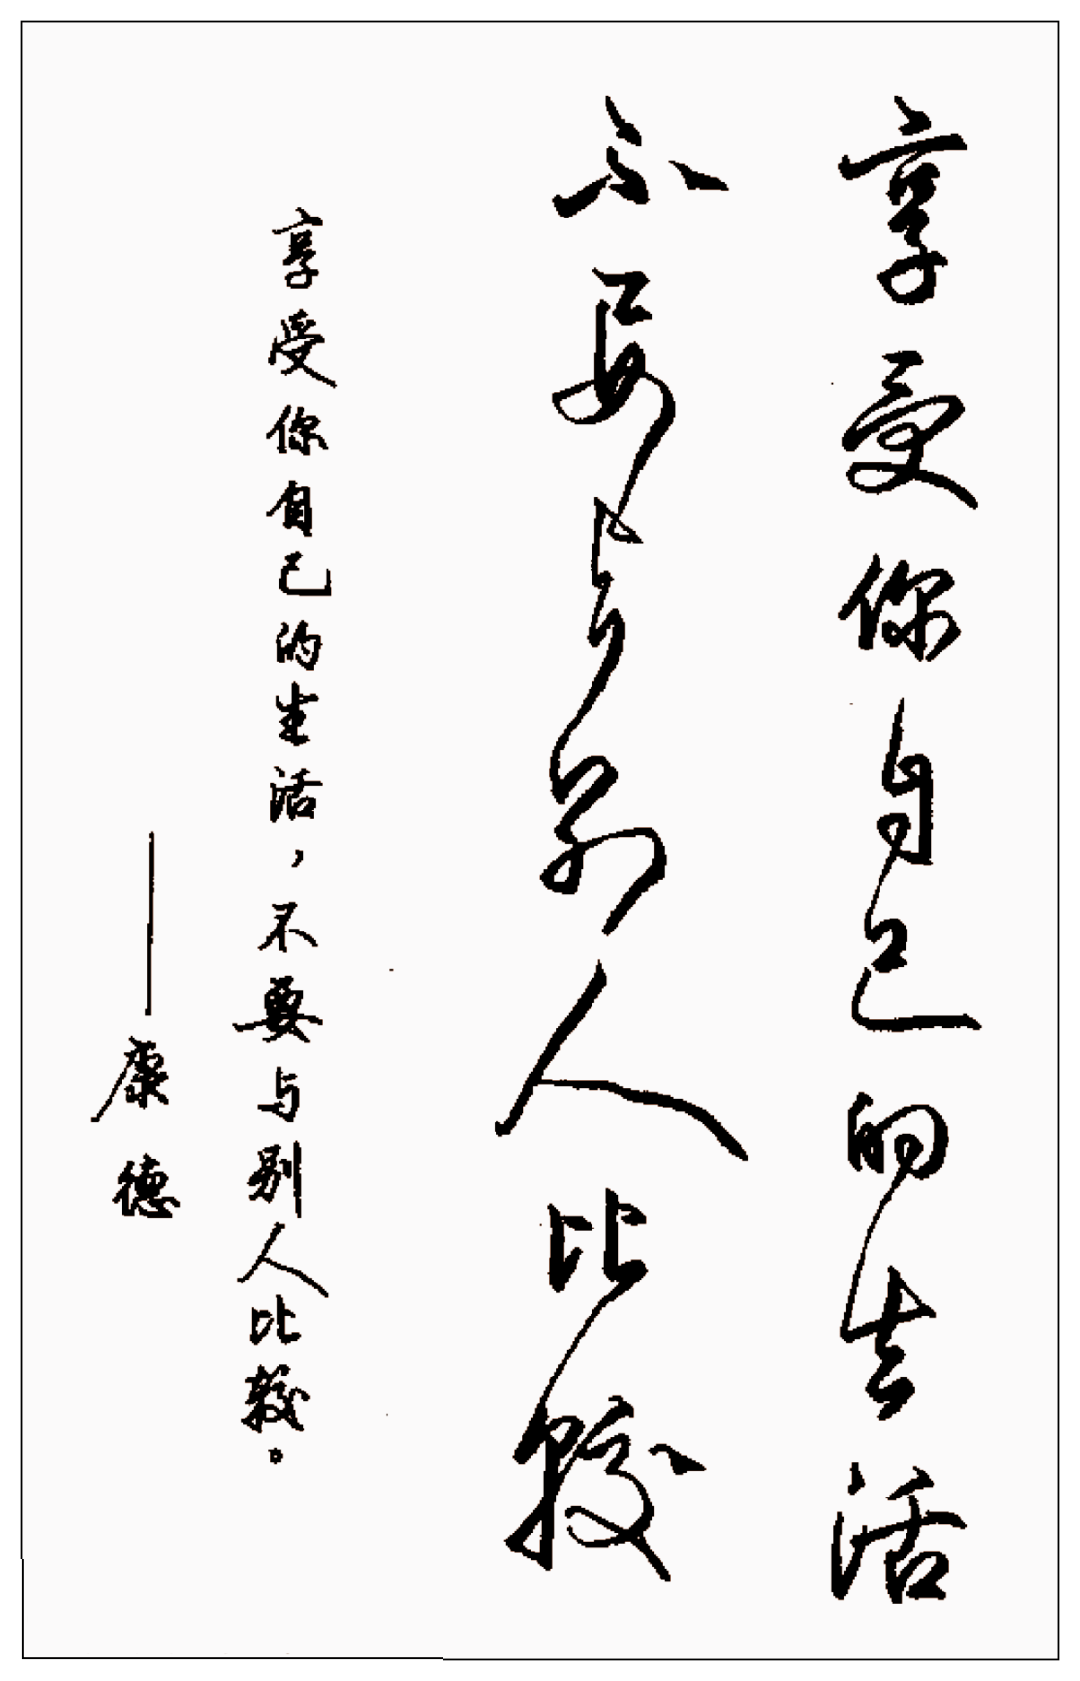 享受你自己的生活
不要与别人比较
享受你自己的生活，不要与别人比较。
——康德